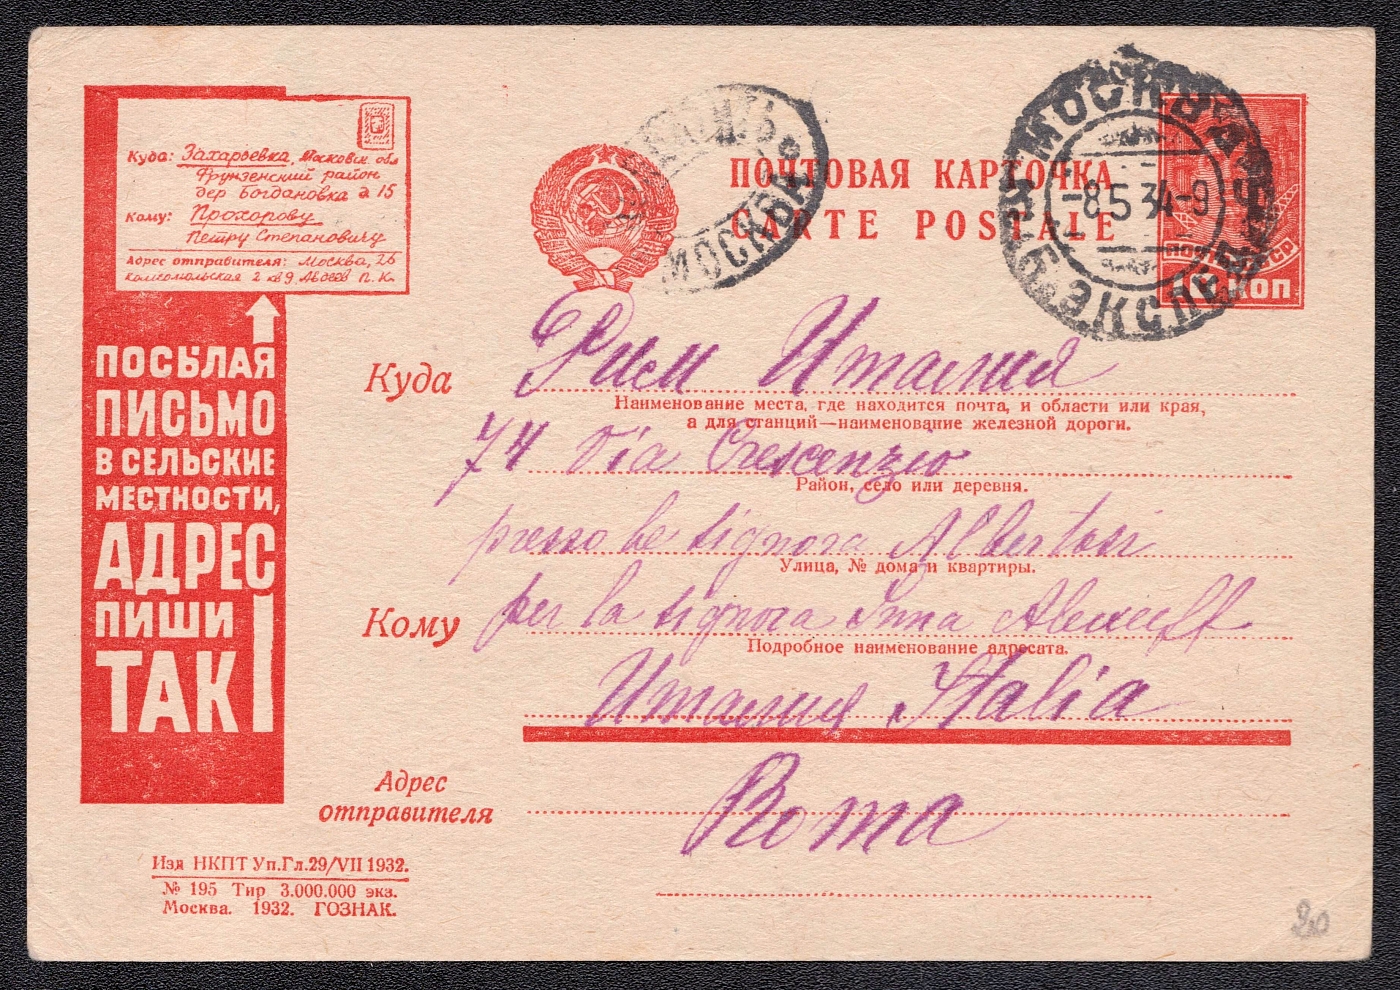 Куда: Захарьевка, Московск. обл
Фрунзенский район
дер Богдановка д 15
Кому: Прохорову
Петру Степановичу
Адрес отправителя: Москва, 26
комсомольская 2 кв 9 П. К.
ПОСЫЛАЯ
ПИСЬМО
В СЕЛЬСКИЕ
МЕСТНОСТИ,
АДРЕС
ПИШИ
ТАК!
МОСКВА
ПОЧТОВАЯ КАРТОЧКА
CARTE POSTALE
МОСКВА
-8 5 34-9
ЭКСП
ПОЧТА СССР
10 КОП
Куда Рим Италия
Наименование места, где находится почта, и области или края,
а для станций—наименование железной дороги.
74 Via Crescenzio
Район, село или деревня.
presso la signora Albertasi
Улица, № дома и квартиры.
Кому per la signora Inna
Подробное наименование адресата.
Италия Italia
Адрес
отправителя
Roma
Изд НКПТ Уп.Гл.29/VII 1932.
№ 195 Тир 3.000.000 экз.
Москва. 1932. ГОЗНАК.
20